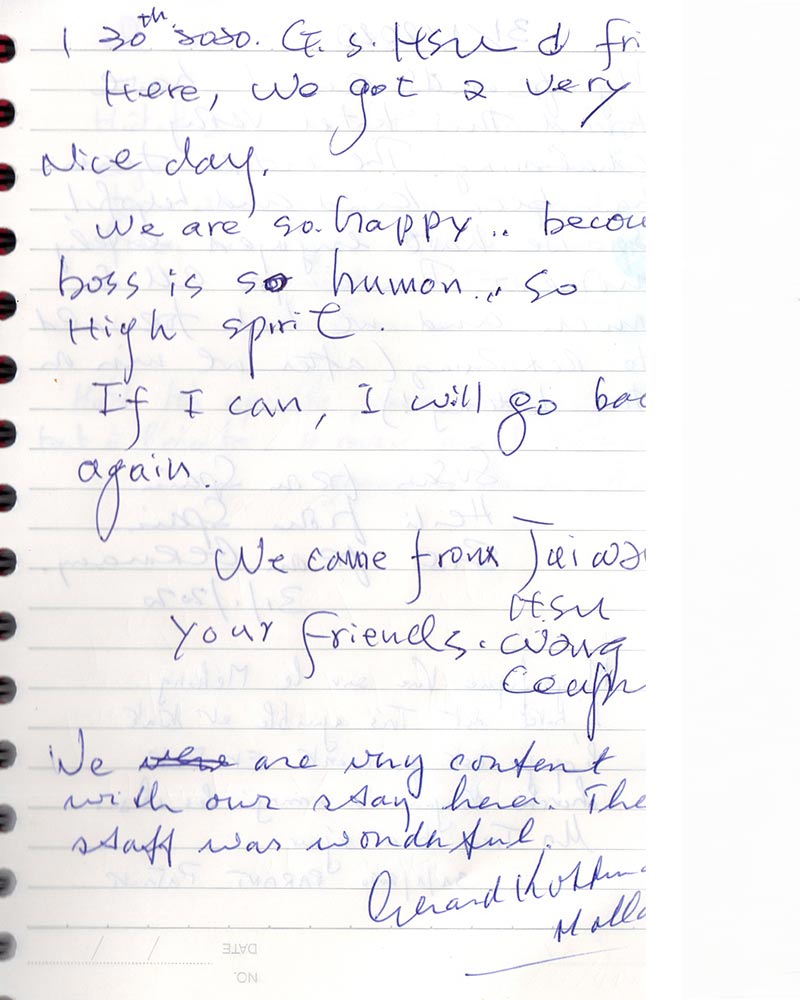 1 30th 2020. G. S. HSU d fri
Here, We got a very
Nice day.
We are so happy .. becou
boss is so humon .. so
High spirit.
If I can, I will go bac
again.
We came from Taiwa
HSU
Your friends. Wang
We are very content
with our stay here. The
staff was wonderful.
Gerard
Holla
DATE
NO.